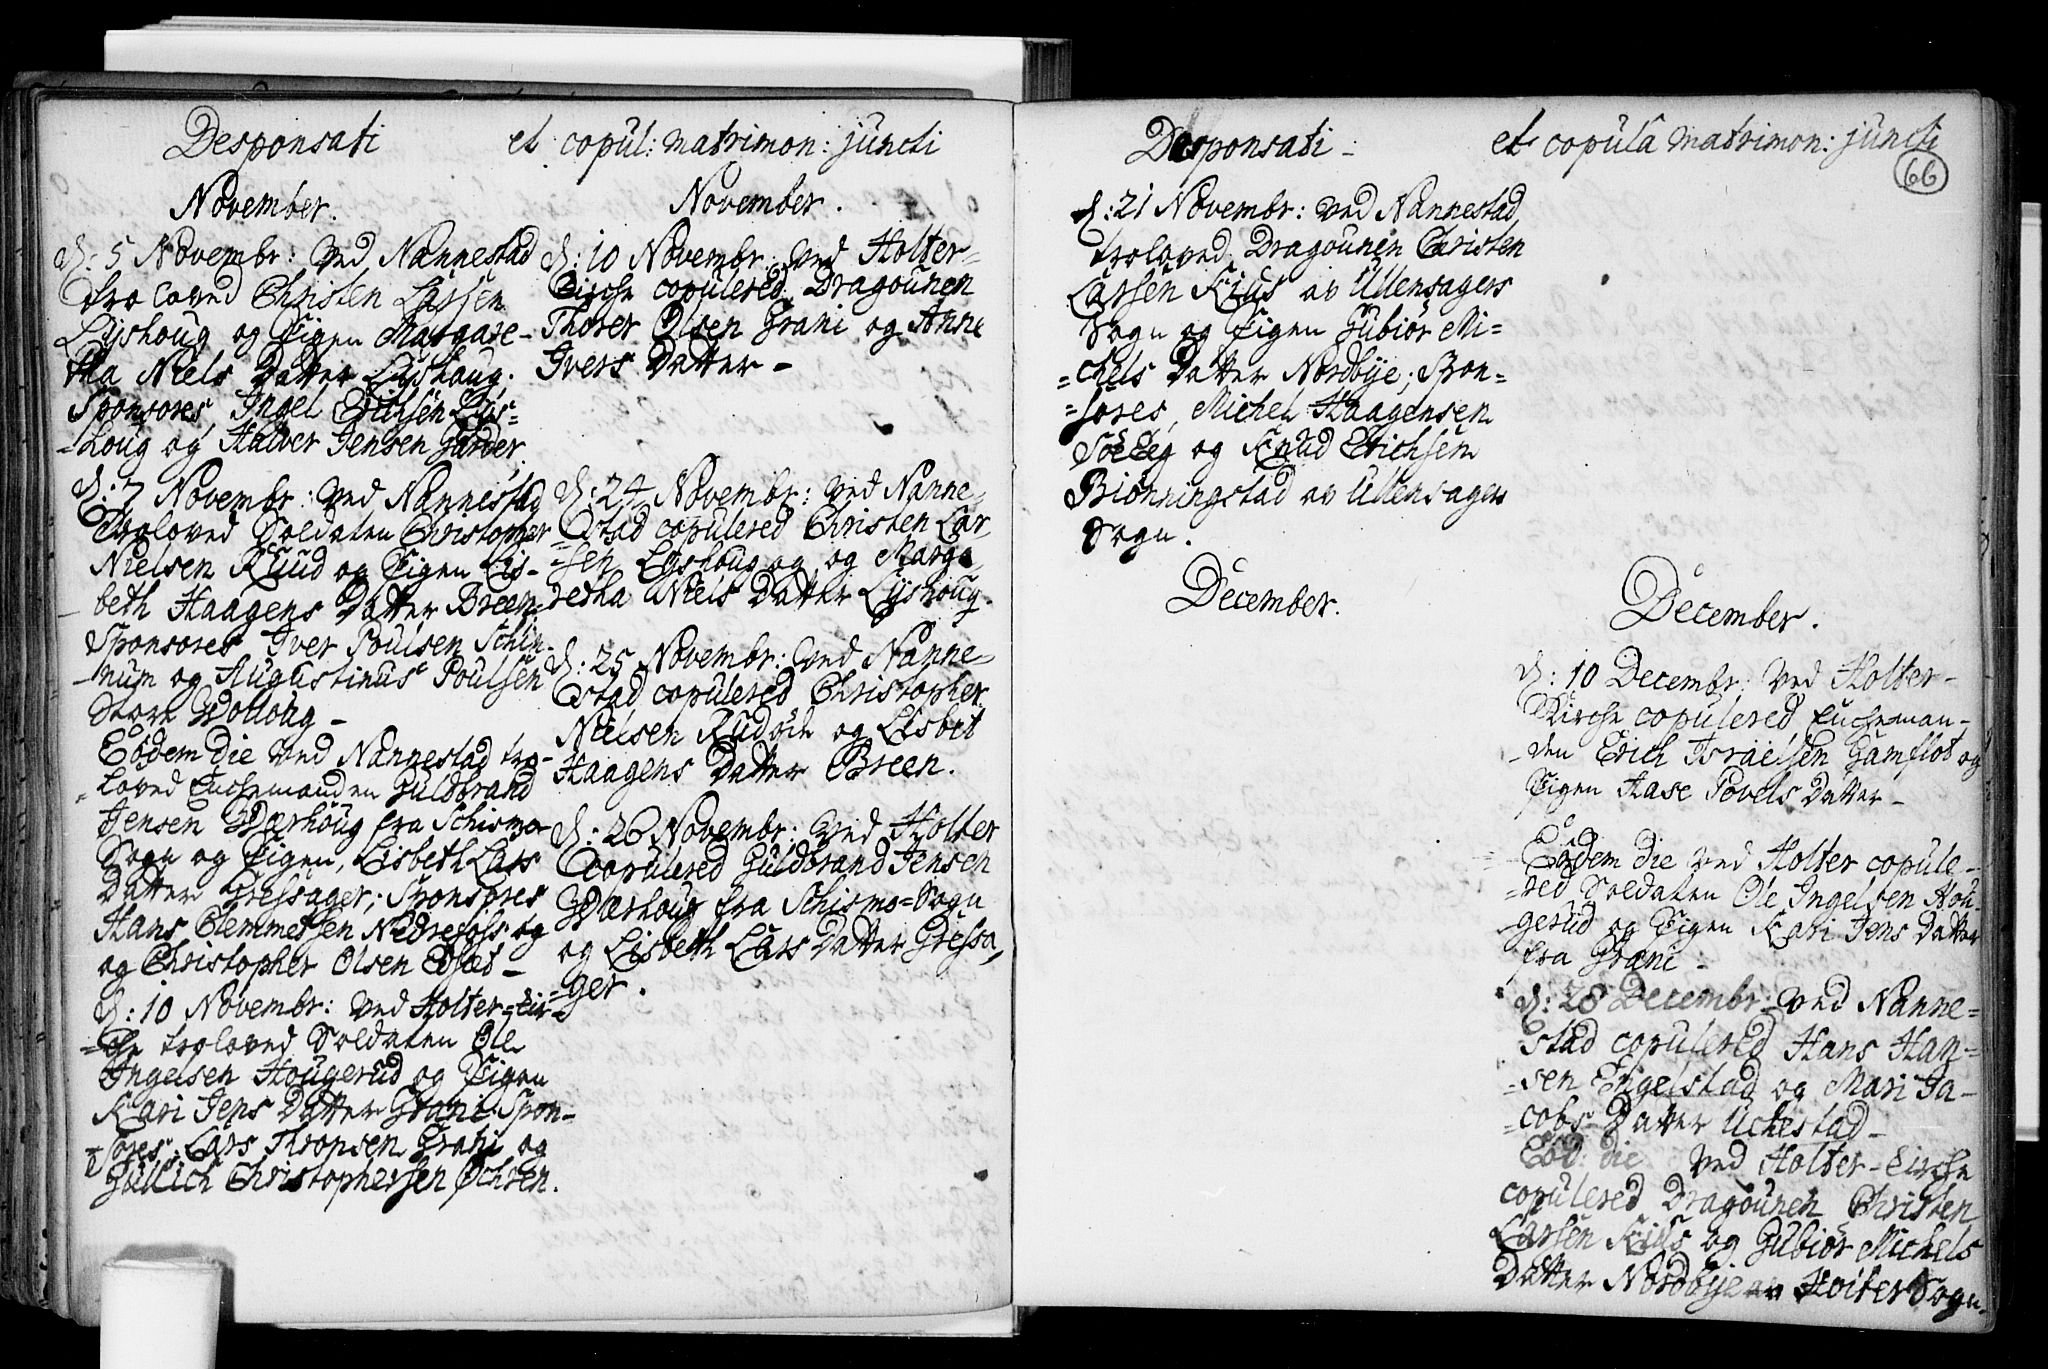 Desponsati
November.
d: 5 Novembr: ved Nannestad
troloved Christen Larsen
Lyshoug og Pigen Margare-
tha Niels Datter Lyshoug;
Sponsores, Ingel Erichsen Lys-
-houg og Halver Jensen Garder.
d: 7 Novembr: ved Nannestad
troloved Soldaten Christopher
Nielsen Ruud og Pigen Lis-
beth Haagens Datter Breen;
Sponsores Iver Poulsen Schin-
-num og Augustinus Poulsen
Store Wollong -
Eodem die ved Nannestad tro-
-loved Enchemanden Guldbrand
Jensen Wærhoug fra Schismo
Sogn og Pigen, Lisbeth Lars
Datter Gressager; Sponsores
Hans Clemmetsen Nedrefoss og
og Christopher Olsen
d: 10 Novembr: ved Holter-Kir-
-che troloved Soldaten Ole
Ingelsen Hougerud og Pigen
Kari Jens Datter Grani. Spon-
-sores, Lars Thropsen Grani og
Gullich Christophersen Ochsen.
et copul: matrimon: juncti
November.
d: 10 Novembr: ved Holter-
Kirche copulered Dragounen
Thorer Olsen Grani og Anne
Ivers Datter -
d: 24 Novembr: ved Nanne-
stad copulered Christen Lar-
-sen Lyshoug og og Marga-
retha Niels Datter Lyshoug.
d: 25 Novembr: ved Nanne-
stad copulered Christopher
Nielsen og Lisbet
Haagens Datter Breen.
d: 26 Novembr: ved Holter
copulered Guldbrand Jensen
Wærhoug fra Schismo-Sogn
og Lisbeth Lars Datter Gressa-
-ger.
Desponsati -
d: 21 Novembr: ved Nannestad
troloved Dragounen Christen
Larsen Kius av Ullensagers
Sogn og Pigen Gubiør Mi-
-chels Datter Nordbye; Spon-
-sores, Michel Haagensen
og Knud Erichsen
Biønningstad av Ullensagers
Sogn.
December.
et copula matrimon: juncti
66
December.
d: 10 Decembr: ved Holter-
Kirche copulered Encheman-
-den Erich Israelsen Gamflot og
Pigen Aase Povels Datter -
Eodem die ved Holter copule-
-red Soldaten Ole Ingelsen Hou-
-gerud og Pigen Kari Jens Datter
fra Grani -
d: 28 Decembr: ved Nanne-
stad copulered Hans Han-
-sen Engelstad og Mari Ja-
-cobs Datter Uchestad -
Eod: die ved Holter-Kirche
copulered Dragounen Christen
Larsen Kius og Gubiør Michels
Datter Nordbye av Holter Sogn.